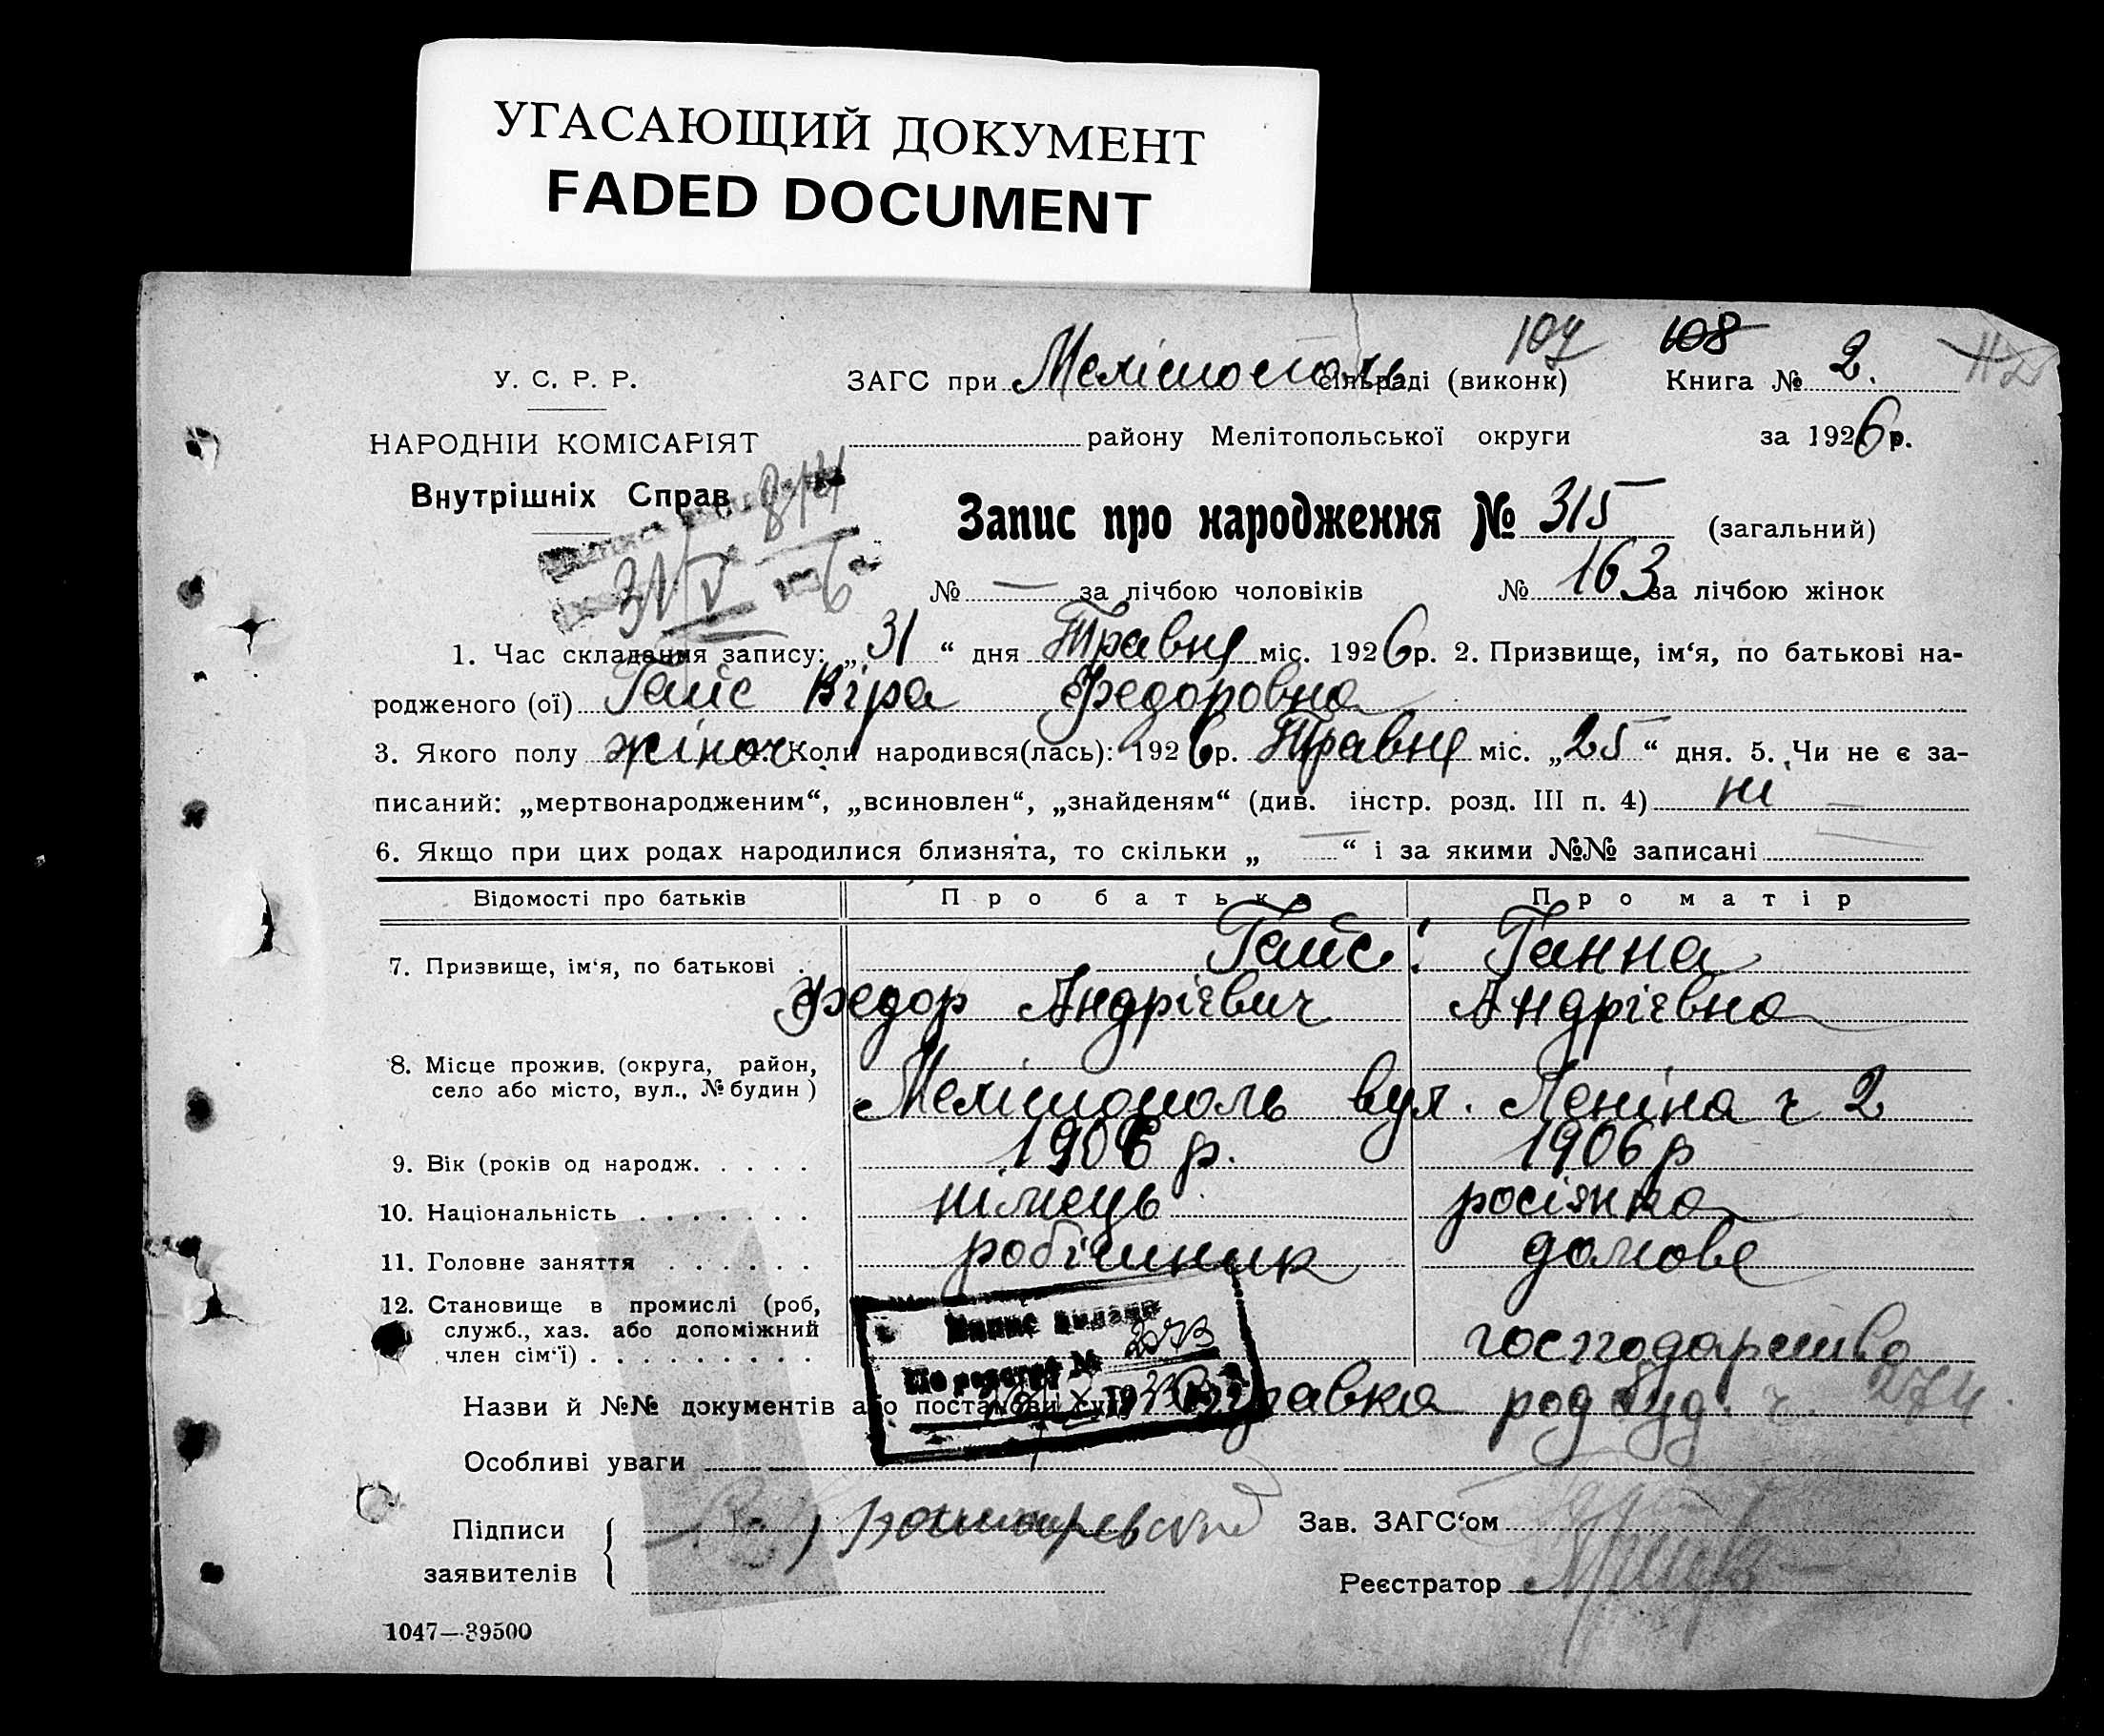 УГАСАЮЩИЙ ДОКУМЕНТ
FADED DOCUMENT
107 108
У. С. Р. Р. ЗАГС при Мелітополь сільраді (виконк) Книга № 2.
НАРОДНІЙ КОМІСАРІЯТ району Мелітопольської округи за 1926 р.
Внутрішніх Справ
Запис про народження № 315 (загальний)
31/V 1926
№ — за лічбою чоловіків № 163 за лічбою жінок
1. Час складання запису: „31“ дня Травня міс. 1926 р. 2. Призвище, ім‘я, по батькові на-
родженого (ої) Гайс Віра Федоровна
3. Якого полу жіноч. 4. Коли народився(лась): 1926 р. Травня міс. „25“ дня. 5. Чи не є за-
писаний: „мертвонародженим“, „всиновлен“, „знайденям“ (див. інстр. розд. III п. 4) ні —
6. Якщо при цих родах народилися близнята, то скільки „ — “ і за якими №№ записані —
Відомості про батьків Про батька Про матір
7. Призвище, ім‘я, по батькові . Гайс: Ганна
Федор Андрієвич Андрієвна
8. Місце прожив. (округа, район,
село або місто, вул., № будин) Мелітополь вул. Леніна ч 2
9. Вік (років од народж. . . . . 1906 р. 1906 р
10. Національність . . . . . . . німець росіянка
11. Головне заняття . . . . . . робітник домове
12. Становище в промислі (роб,
служб., хаз. або допоміжний
член сім‘ї) . . . . . . . . . господарство
Назви й №№ документів або постанови суду Справка род буд. ч. 274
Особливі уваги
Підписи
заявителів
Зав. ЗАГС‘ом
Реєстратор
1047—39500